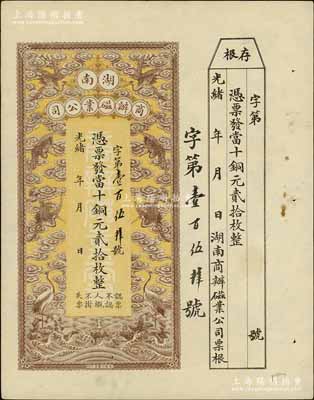 上海陽明拍賣
湖南
商辦磁業公司
字第壹百伍拾號
憑票發當十銅元貳拾枚整
光緒 年 月 日
認票不認人
不掛失票
字第壹百伍拾號
存根
字第 號
憑票發當十銅元貳拾枚整
光緒 年 月 日湖南商辦磁業公司票根